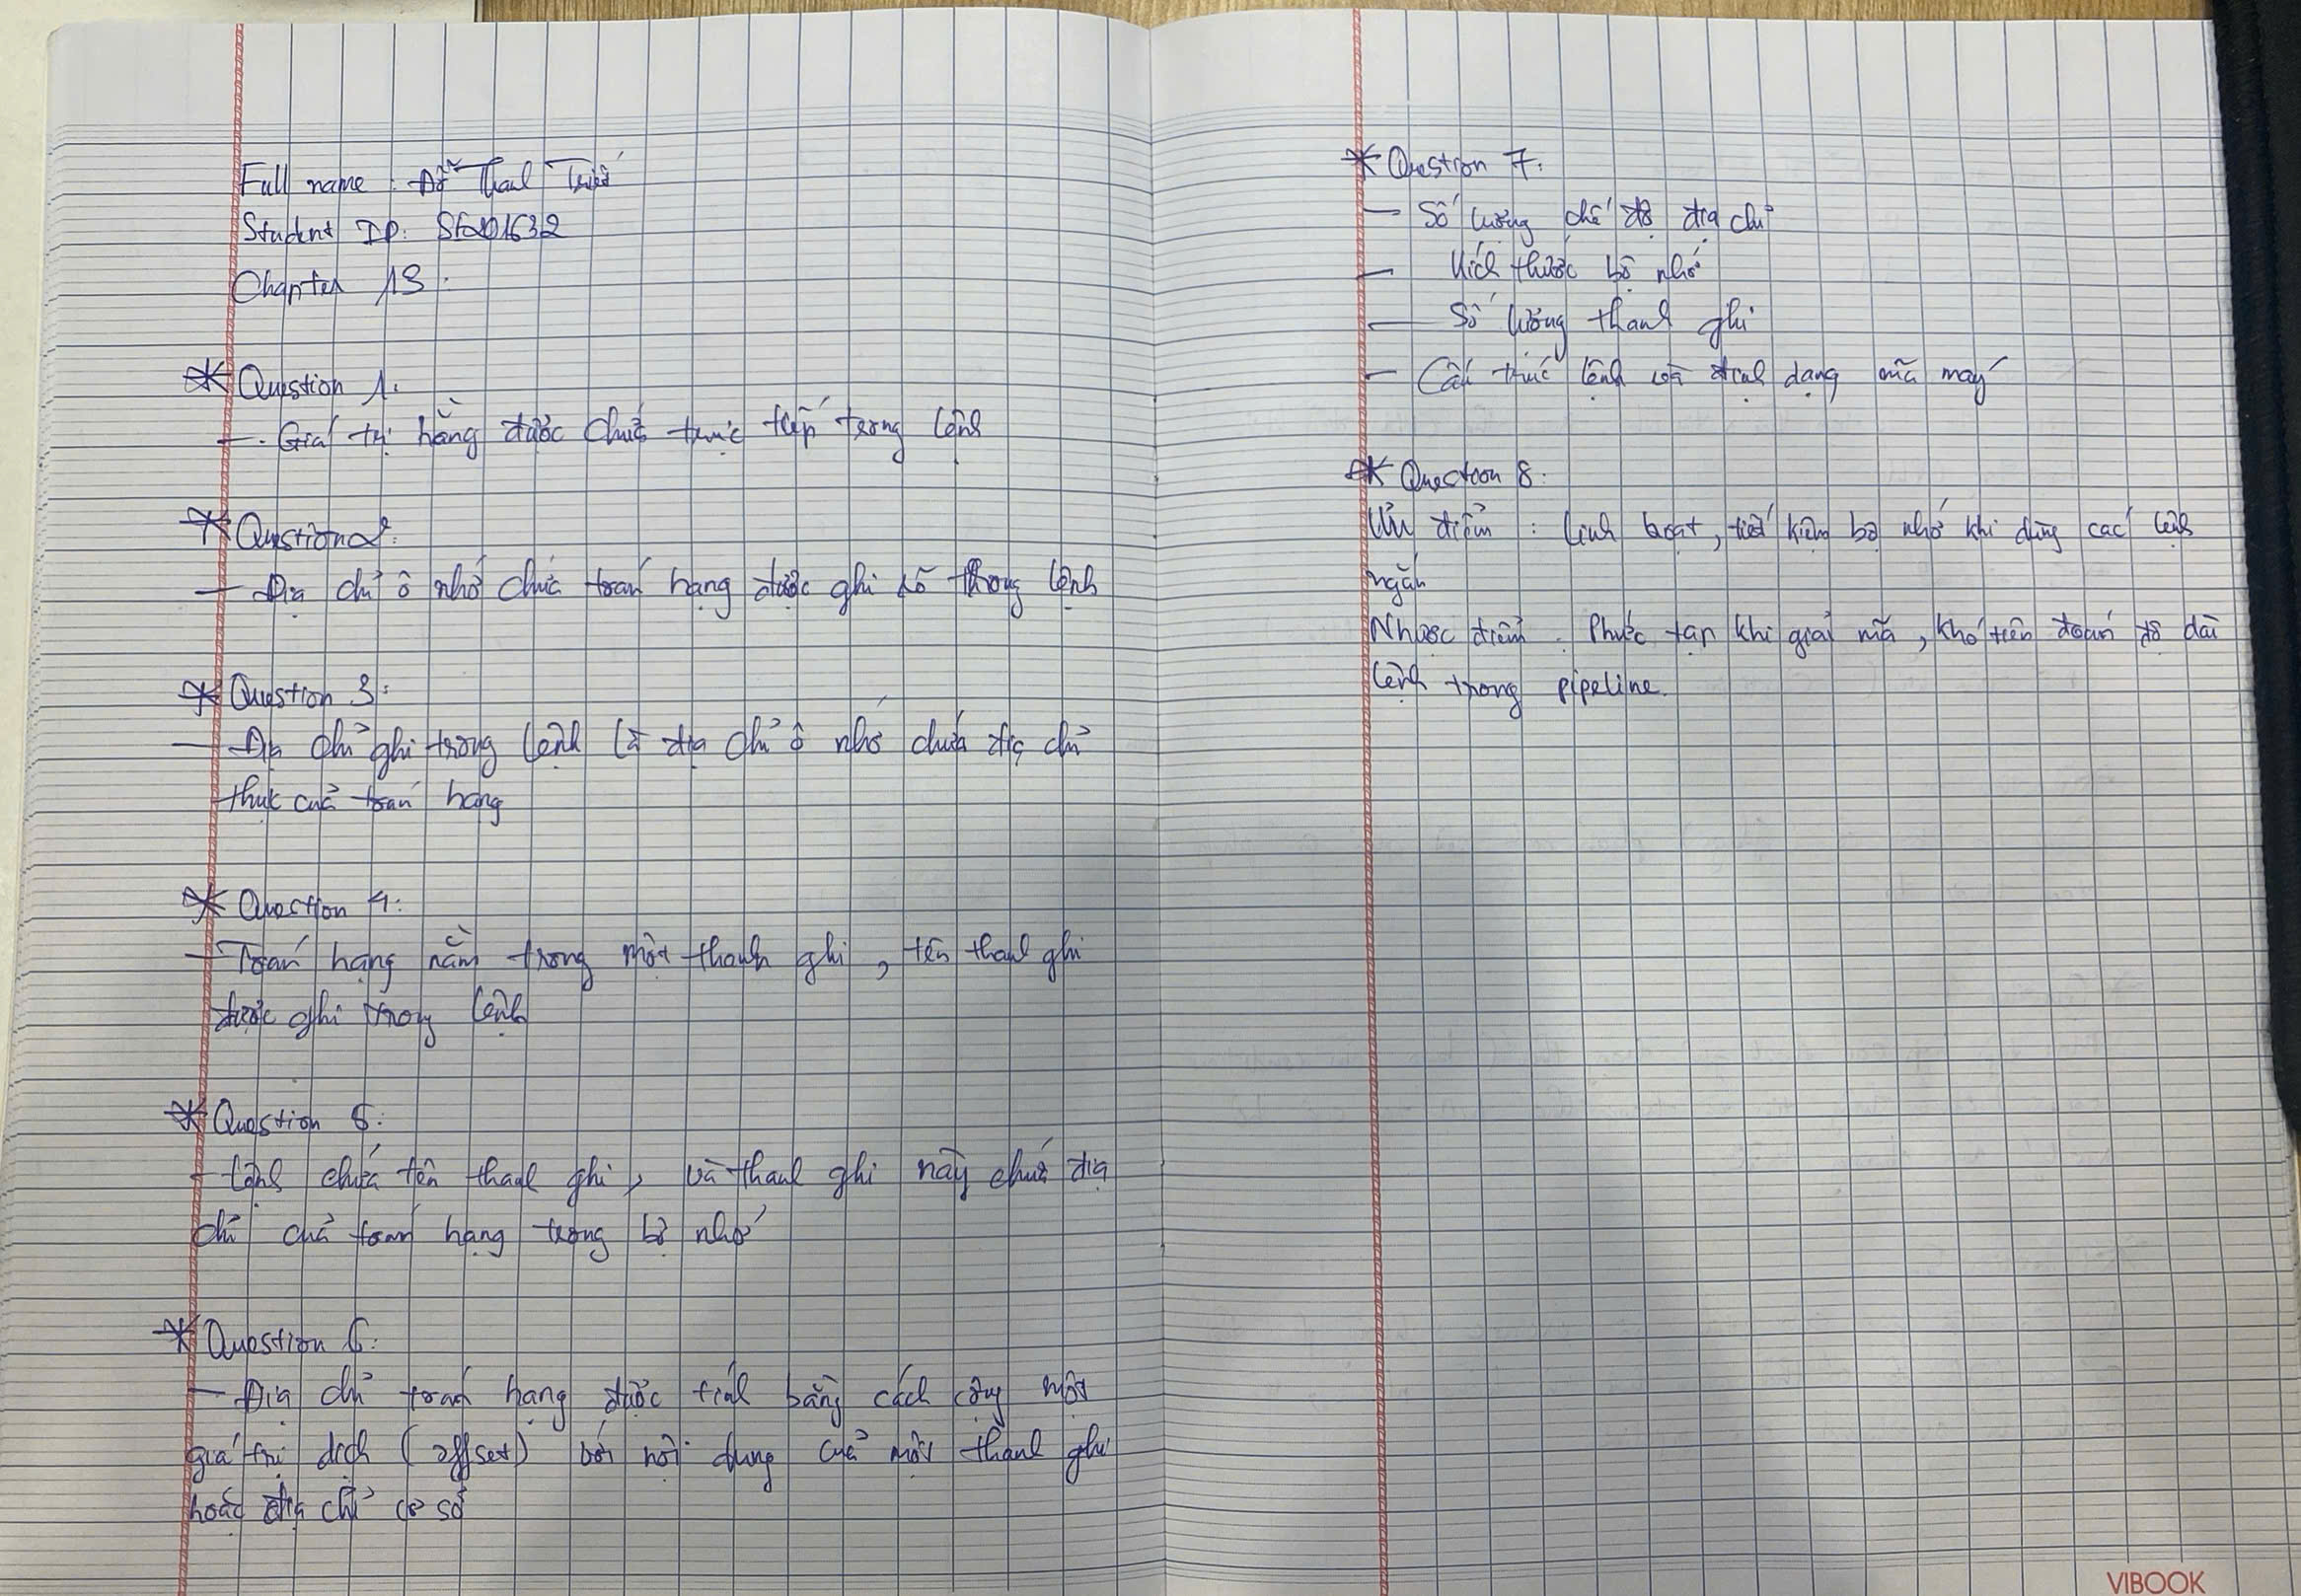 Full name : Đỗ Thanh
Student ID:
Chapter 13.
* Question 1.
- Giá trị hằng được chứa trực tiếp trong lệnh
* Question 2:
- Địa chỉ ô nhớ chứa toán hạng được ghi rõ trong lệnh
* Question 3:
- Địa chỉ ghi trong lệnh là địa chỉ ô nhớ chứa địa chỉ
thực của toán hạng
* Question 4:
- Toán hạng nằm trong một thanh ghi, tên thanh ghi
được ghi trong lệnh
* Question 5:
- Lệnh chứa tên thanh ghi, và thanh ghi này chứa địa
chỉ của toán hạng trong bộ nhớ
* Question 6:
- Địa chỉ toán hạng được tính bằng cách cộng một
giá trị dịch (offset) với nội dung của một thanh ghi
hoặc địa chỉ cơ sở
* Question 7:
- Số lượng chế độ địa chỉ
- Kích thước bộ nhớ
- Số lượng thanh ghi
- Cấu trúc lệnh và định dạng mã máy
* Question 8:
Ưu điểm : linh hoạt, tiết kiệm bộ nhớ khi dùng các lệnh
ngắn
Nhược điểm : Phức tạp khi giải mã, khó tiên đoán độ dài
lệnh trong pipeline.
VIBOOK